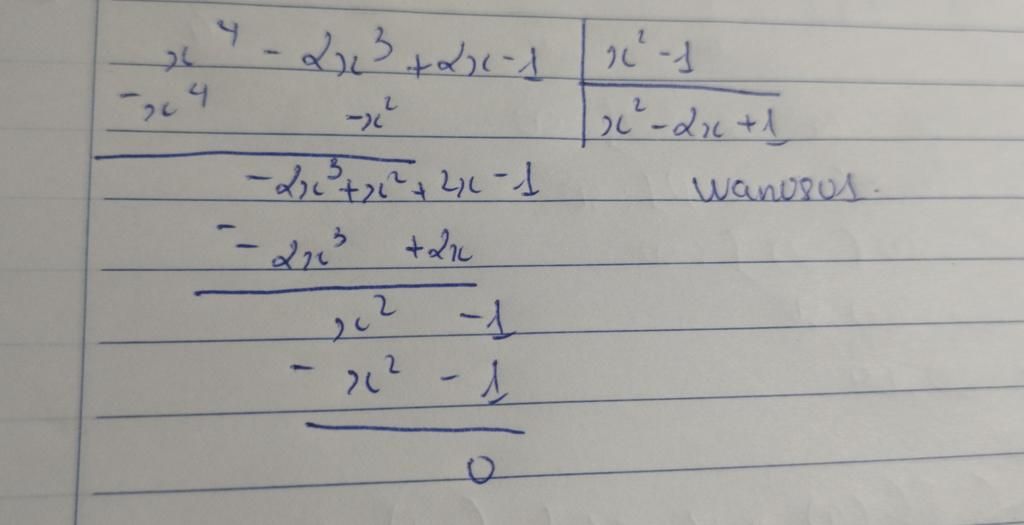 x⁴ - 2x³ + 2x - 1 | x² - 1
- x⁴ - x² | x² - 2x + 1
- 2x³ + x² + 2x - 1
- - 2x³ + 2x
x² - 1
- x² - 1
0